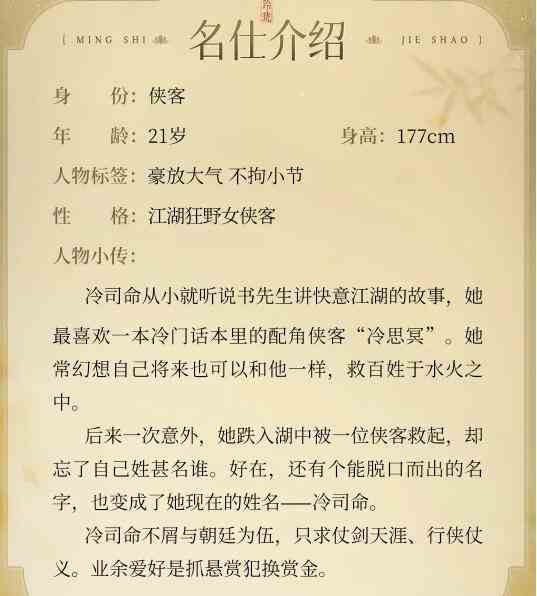 [ MING SHI
名仕介绍
JIE SHAO ]
身 份：侠客
年 龄：21岁 身高：177cm
人物标签：豪放大气 不拘小节
性 格：江湖狂野女侠客
人物小传：
冷司命从小就听说书先生讲快意江湖的故事，她
最喜欢一本冷门话本里的配角侠客“冷思冥”。她
常幻想自己将来也可以和他一样，救百姓于水火之
中。
后来一次意外，她跌入湖中被一位侠客救起，却
忘了自己姓甚名谁。好在，还有个能脱口而出的名
字，也变成了她现在的姓名——冷司命。
冷司命不屑与朝廷为伍，只求仗剑天涯、行侠仗
义。业余爱好是抓悬赏犯换赏金。